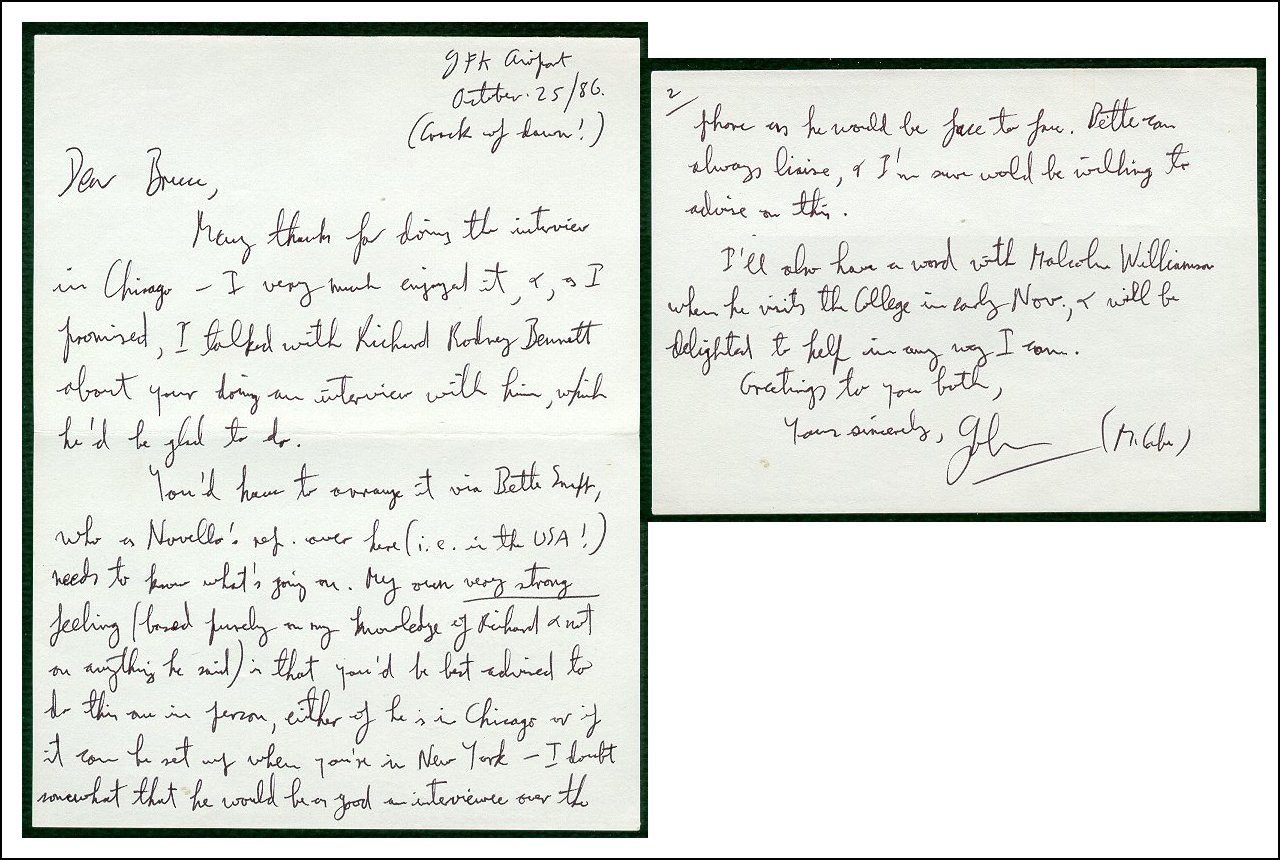 JFK Airport
October. 25/86.
(Crack of dawn!)
Dear Bruce,
Many thanks for doing the interview
in Chicago – I very much enjoyed it, &, as I
promised, I talked with Richard Rodney Bennett
about your doing an interview with him, which
he'd be glad to do.
You'd have to arrange it via Bette Snapp,
who as Novello's rep. over here (i.e. in the USA!)
needs to know what's going on. My own very strong
feeling (based purely on my knowledge of Richard & not
on anything he said) is that you'd be best advised to
do this one in person, either if he is in Chicago or if
it can be set up when you're in New York – I doubt
somewhat that he would be as good an interviewee over the
2/
phone as he would be face to face. Bette can
always liaise, & I'm sure would be willing to
advise on this.
I'll also have a word with Malcolm Williamson
when he visits the College in early Nov., & will be
delighted to help in any way I can.
Greetings to you both,
Yours sincerely, John (McCabe)